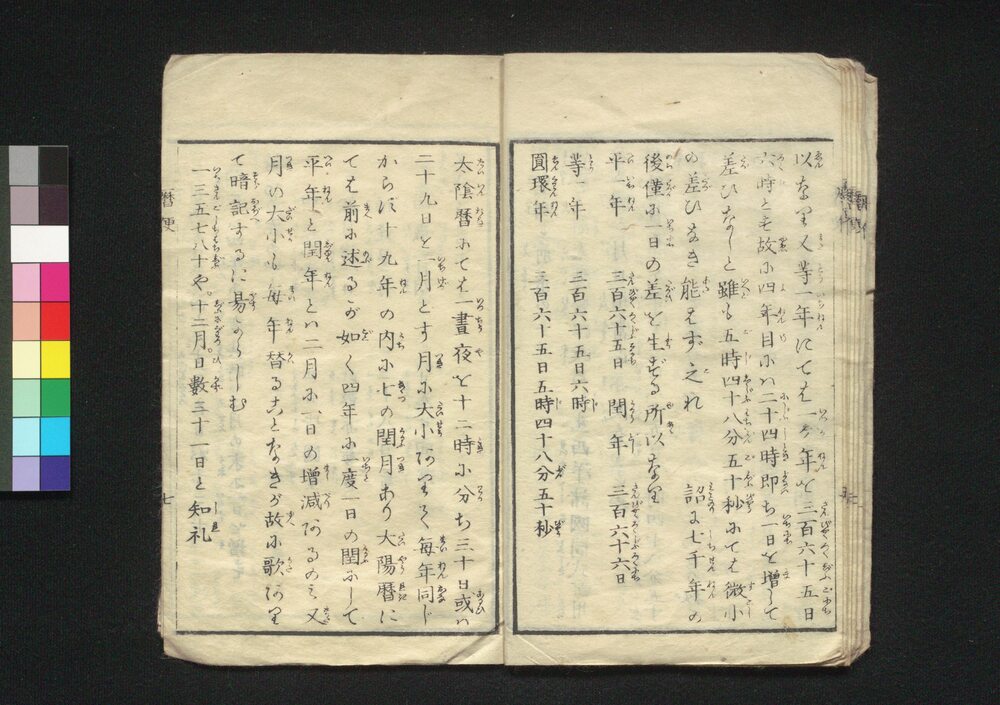 以なり又等一年にては一ヶ年を三百六十五日
六時とも故に四年目には二十四時即ち一日を増して
差ひなしと雖も五時四十八分五十秒にては微小
の差ひなき能はず之れ 詔に七千年の
後僅に一日の差を生ずる所以なり
平一年 三百六十五日 閏年 三百六十六日
等一年 三百六十五日六時
圓環年 三百六十五日五時四十八分五十秒
太陰暦にては一晝夜を十二時に分ち三十日或は
二十九日を一月とす月に大小ありて毎年同じ
からず十九年の内に七の閏月あり大陽暦に
ては前に述るが如く四年に一度一日の閏にして
平年と閏年とは二月に一日の増減あるのミ又
月の大小も毎年替ることなきが故に歌あり
て暗記するに易からしむ
一三五七八十や。十二月。日數三十一日と知礼
暦便
七